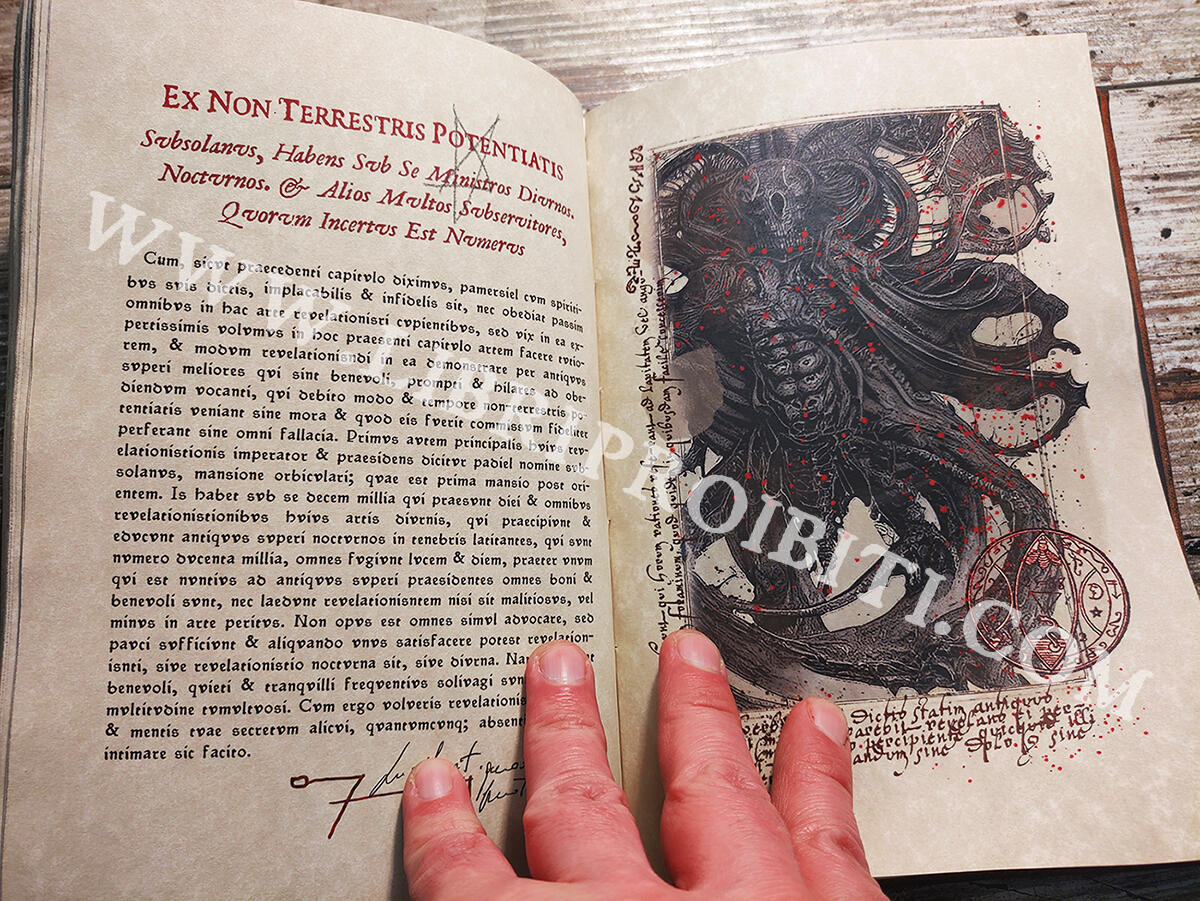 Ex Non Terrestris Potentiatis
Svbsolanvs, Habens Svb Se Ministros Divrnos.
Noctvrnos. & Alios Mvltos Svbservitores,
Qvorvm Incertvs Est Nvmervs
Cvm, sicvt praecedenti capitvlo diximvs, pamersiel cvm spiriti-
bvs svis diceis, implacabilis & infidelis sit, nec obediat passim
omnibvs in hac arte revelationisri cvpientibvs, sed vix in ea ex-
pertissimis volvmvs in hoc praesenti capitvlo artem facere tvtio-
rem, & modvm revelationisndi in ea demonstrare per antiqvvs
svperi meliores qvi sint benevoli, prompti & hilares ad obe-
diendvm vocanti, qvi debito modo & tempore non-terrestris po-
tentiatis veniant sine mora & qvod eis fverit commissvm fideliter
perferant sine omni fallacia. Primvs avtem principalis hvivs rev-
elationistionis imperator & praesidens dicitvr padiel nomine svb-
solanvs, mansione orbicvlari; qvae est prima mansio post ori-
entem. Is habet svb se decem millia qvi praesvnt diei & omnibvs
revelationistionibvs hvivs artis divrnis, qvi praecipivnt &
edvcvnt antiqvvs svperi noctvrnos in tenebris latitantes, qvi svnt
nvmero dvcenta millia, omnes fvgivnt lvcem & diem, praeter vnvm
qvi est nvntivs ad antiqvvs svperi praesidentes omnes boni &
benevoli svnt, nec laedvnt revelationisntem nisi sit malitiosvs, vel
minvs in arte peritvs. Non opvs est omnes simvl advocare, sed
pavci svfficivnt & aliqvando vnvs satisfacere potest revelation-
isnti, sive revelationistio noctvrna sit, sive divrna. Nam
benevoli, qvieti & tranqvilli freqventivs solivagi svn
mvltitvdine tvmvltvosi. Cvm ergo volveris revelationis
& mentis tvae secretvm alicvi, qvantvmcvnq; absenti
intimare sic facito.
Dictio statim antiqvvo
sine
WWW.LIBRIPROIBITI.COM